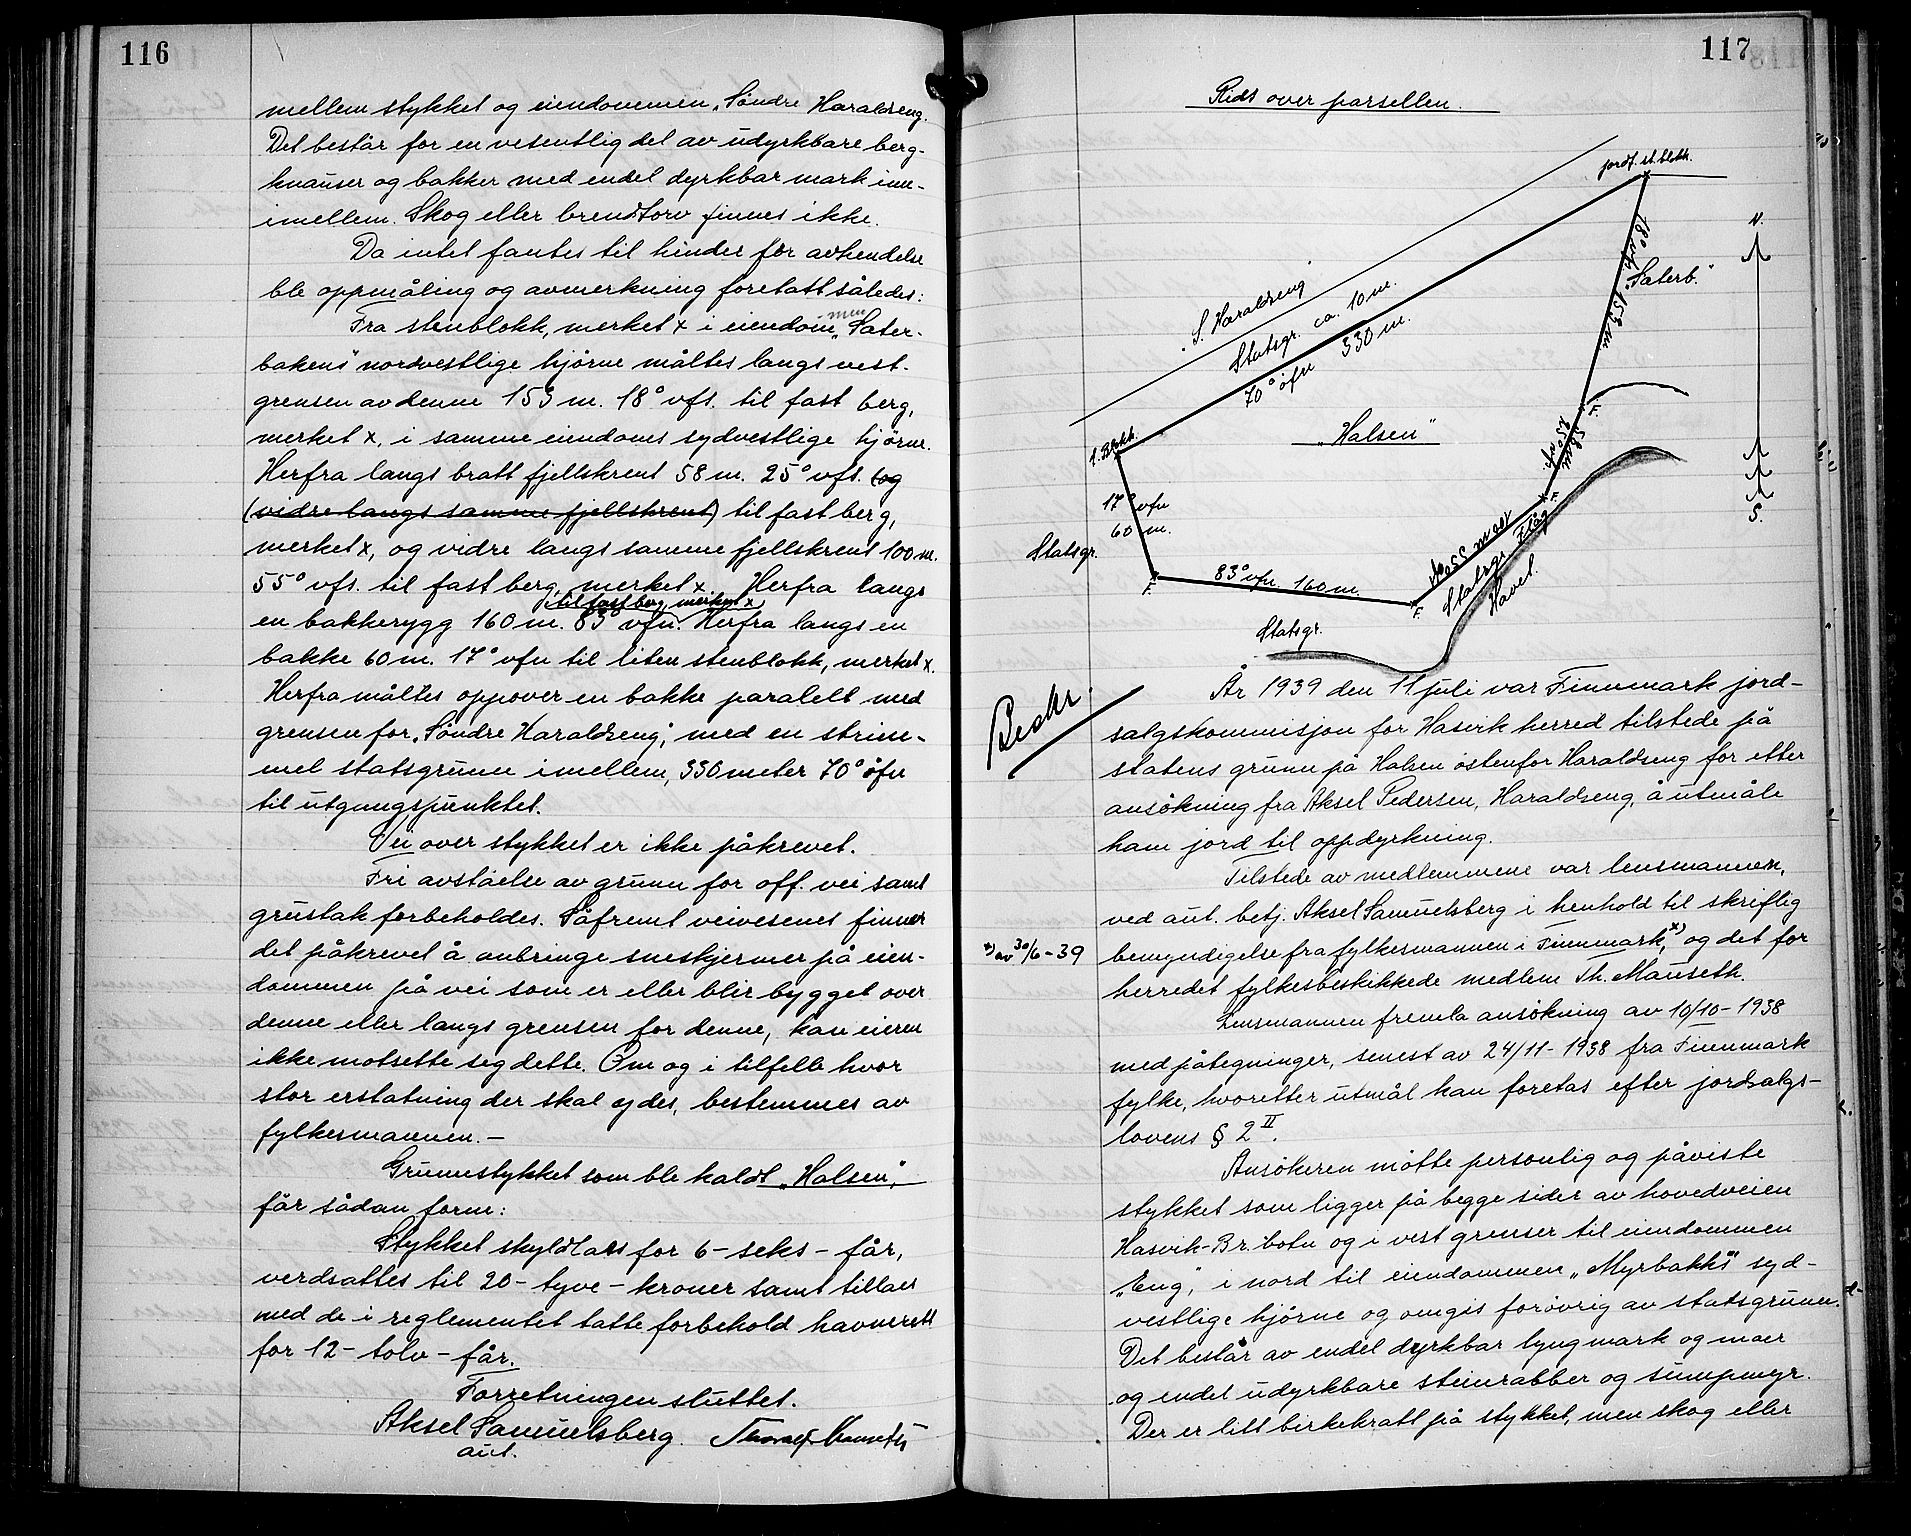 116
mellem stykket og eiendommen „Söndre Haraldseng.
Det består for en vesentlig del av udyrkbare berg-
knauser og bakker med endel dyrkbar mark inn-
imellem. Skog eller brendtorv finnes ikke.
Da intet fantes til hinder for avhendelse
ble oppmåling og avmerkning foretatt således:
Fra stenblokk, merket x i eiendommen „Sater-
bakens" nordvestlige hjörne måltes langs vest-
grensen av denne 153 m. 18° vfs. til fast berg,
merket x, i samme eiendoms sydvestlige hjörne.
Herfra langs bratt fjellskrent 58 m. 25° vfs. (og
(vidre langs samme fjellskrent) til fast berg,
merket x, og vidre langs samme fjellskrent 100 m.
55° vfs. til fast berg, merket x. Herfra langs
til fast berg, merket x
en bakkerygg 160 m. 83° vfn. Herfra langs en
bakke 60 m. 17° vfn til liten stenblokk, merket x.
Herfra måltes oppover en bakke paralelt med
grensen for „Söndre Haraldseng", med en strim-
mel statsgrunn imellem, 330 meter 70° öfn
til utgangspunktet.
Vei over stykket er ikke påkrevet.
Fri avståelse av grunn for off. vei samt
grustak forbeholdes. Såfremt veivesenet finner
det påkrevet å anbringe sneskjermer på eien-
dommen på vei som er eller blir bygget over
denne eller langs grensen for denne, kan eieren
ikke motsette seg dette. Om og i tilfelle hvor
stor erstatning der skal ydes, bestemmes av
fylkesmannen. –
Grunnstykket som ble kaldt „Halsen",
får sådan form:
Stykket skyldlas for 6 – seks – får,
verdsattes til 20 – tyve – kroner samt tillaes
med de i reglementet tatte forbehold havnerett
for 12 – tolv – får.
Forretningen sluttet.
Aksel Samuelsberg. Thomas Mauseth
aut.
117
Rids over parsellen.
jordf. st. blokk.
N.
18° vfs.
153 m
„Saterb."
S. Haraldseng
Statsgr. ca. 10 m.
330 m.
70° öfn
„Halsen"
l. Blokk.
F.
25° vfs.
58 m
17° vfn
60 m.
F.
S.
Statsgr.
83° vfn. 160 m.
Statsgr. Flåg
Havet.
F.
F.
Statsgr.
Bedr.
År 1939 den 11 juli var Finnmark jord-
salgskommisjon for Hasvik herred tilstede på
statens grunn på Halsen östenfor Haraldseng for etter
ansökning fra Aksel Pedersen, Haraldseng, å utmåle
ham jord til oppdyrkning.
Tilstede av medlemmene var lensmannen,
ved aut. betj. Aksel Samuelsberg i henhold til skriftlig
x) av 30/6 – 39
bemyndigelse fra fylkesmannen i Finnmark, x) og det for
herredet fylkesbeskikkede medlem Th. Mauseth.
Lensmannen fremla ansökning av 10/10 – 1938
med påtegninger, senest av 24/11 – 1938 fra Finnmark
fylke, hvoretter utmål kan foretas efter jordsalgs-
lovens § 2 II.
Ansökeren mötte personlig og påviste
stykket som ligger på begge sider av hovedveien
Hasvik – Br. botn og i vest grenser til eiendommen
„Eng", i nord til eiendommen „Myrbakks" syd-
vestlige hjörne og omgis forövrig av statsgrunn.
Det består av endel dyrkbar lyngmark og moer
og endel udyrkbare steinrabber og sumpmyr.
Der er litt birkekratt på stykket, men skog eller